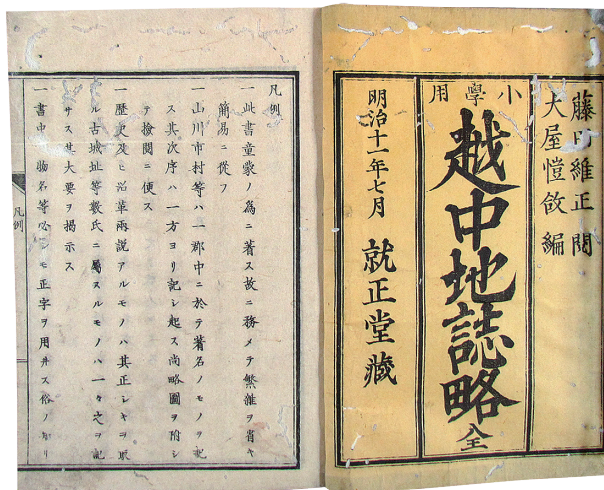 藤田維正 閲
大屋愷敆 編
小學用
越中地誌略 全
明治十一年七月 就正堂藏
凡例
一此書童蒙ノ爲ニ著ス故ニ務メテ繁雜ヲ省キ
簡易ニ從フ
一山川市村等ハ一郡中ニ於テ著名ノモノヲ記
ス其次序ハ一方ヨリ記シ起ス尚略圖ヲ附シ
テ檢閲ニ便ス
一歷史及ヒ沿革兩説アルモノハ其正シキヲ取
ル古城址等數氏ニ屬スルモノハ一々之ヲ記
サス其大要ヲ掲示ス
一書中 物名等必シモ正字ヲ用井ス俗ノ
凡例